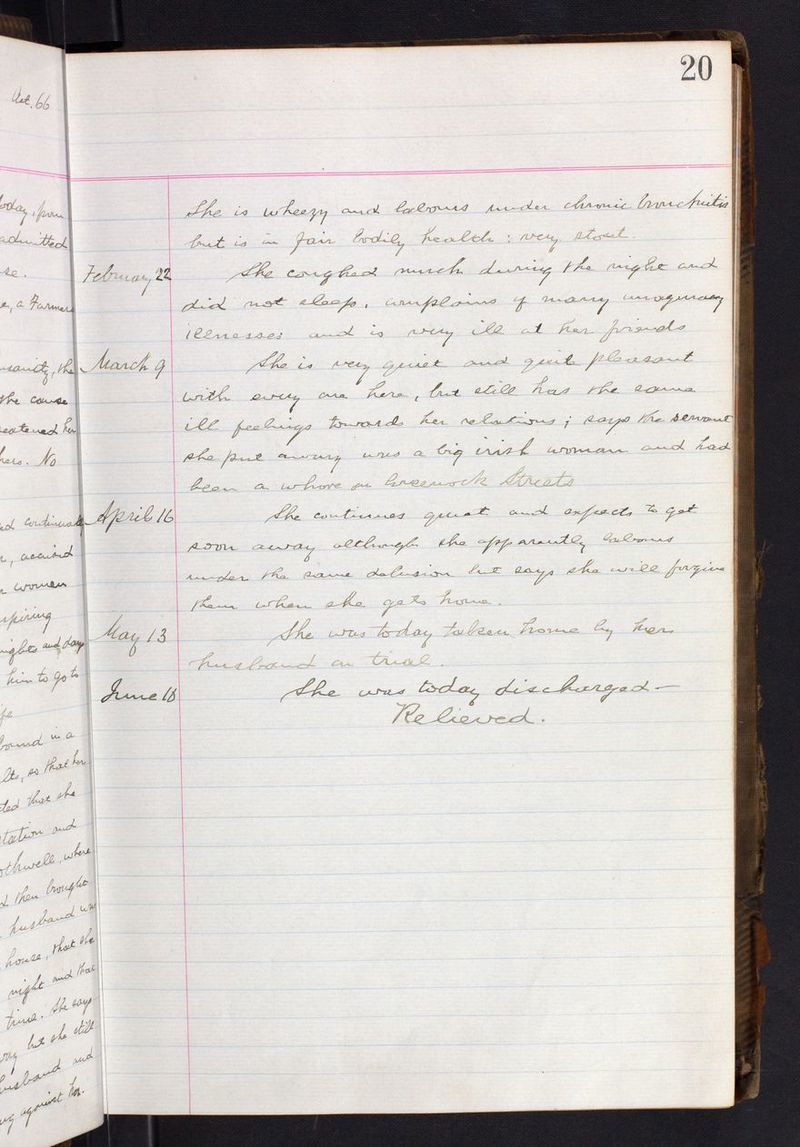 Aet. 66
today, from
admitted
se.
e, a Farmer
insanity, the
the cause
threatened her
hers. No
ed continually
r, accused
women
nights and days
him to go to
fe
bound in a
so that her
ted that she
tation and
othwell, where
d then brought
husband was
house, that she
night and that
time. She says
but she still
husband and
against her.
20
She is wheezy and labours under chronic bronchitis
but is in fair bodily health : very stout.
February 22 She coughed much during the night and
did not sleep. complains of many imaginary
illnesses and is very ill at her friends
March 9 She is very quiet and quite pleasant
with every one here, but still has the same
ill feelings towards her relations ; says the servant
she put away was a big irish woman and had
been a whore on Greenock Streets
April 16 She continues quiet and expects to get
soon away although she apparently labours
under the same delusion but says she will forgive
them when she gets home.
May 13 She was today taken home by her
husband on trial.
June 10 She was today discharged —
Relieved.